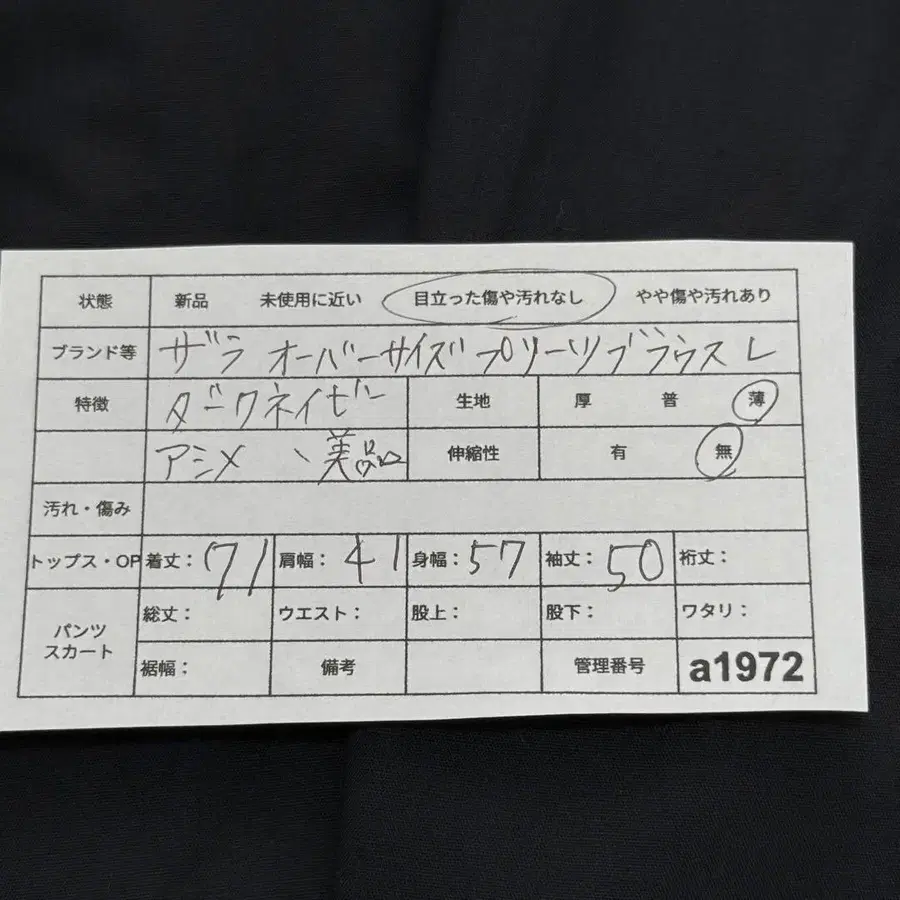 状態 新品 未使用に近い 目立った傷や汚れなし やや傷や汚れあり
ブランド等 ザラ オーバーサイズプリーツブラウス L
特徴 ダークネイビー 生地 厚 普 薄
アシメ、美品 伸縮性 有 無
汚れ・傷み
トップス・OP 着丈：71 肩幅：41 身幅：57 袖丈：50 裄丈：
パンツ スカート 総丈： ウエスト： 股上： 股下： ワタリ：
裾幅： 備考 管理番号 a1972